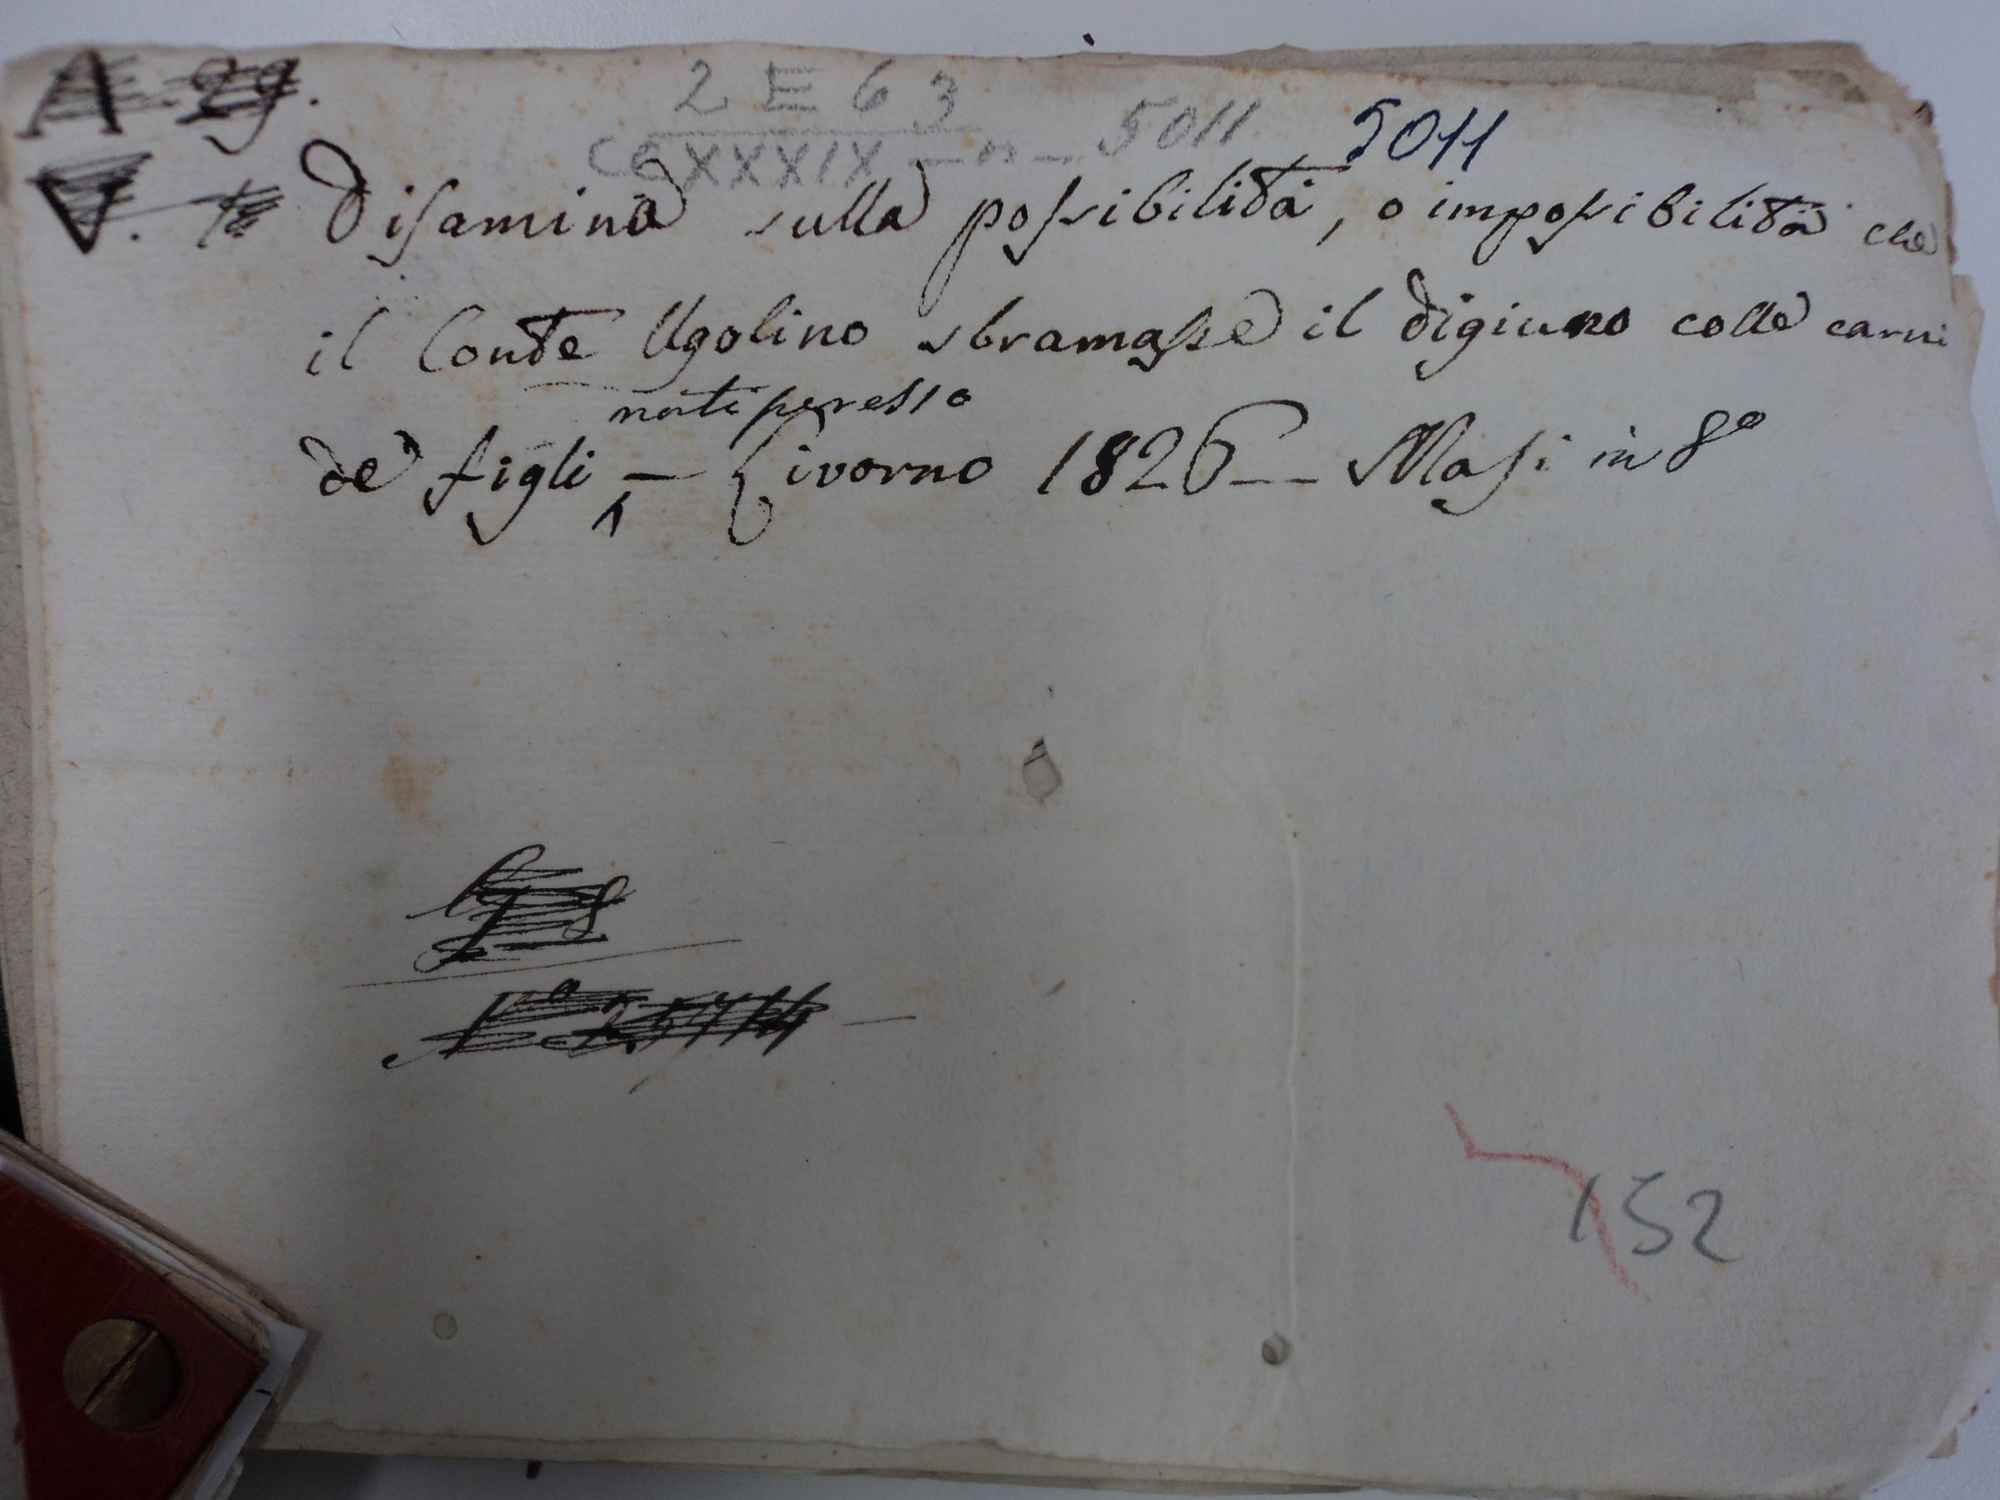 A. 29.
2 E 63
CCXXXIX — n — 5011
5011
V. Disamina sulla possibilità, o impossibilità che
il Conte Ugolino sbramasse il digiuno colle carni
morti per esso
de figli — Livorno 1826 — Masi in 8º
Nº
152